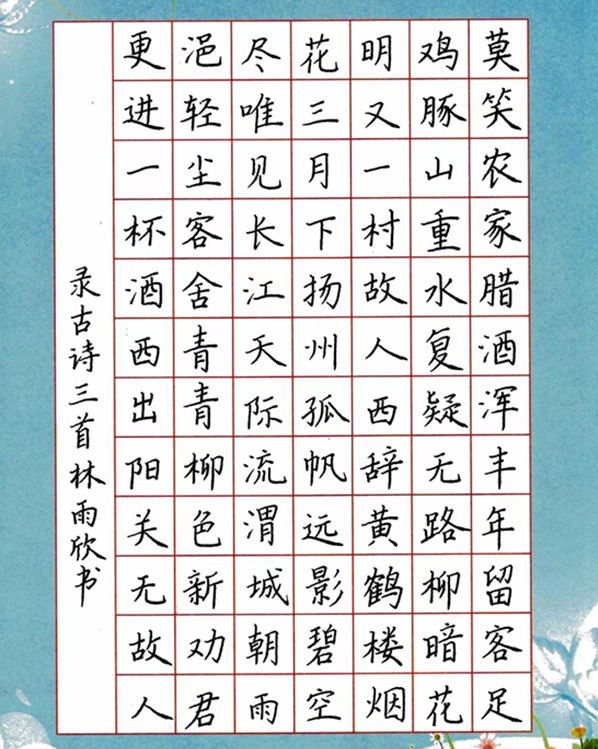 莫笑农家腊酒浑丰年留客足
鸡豚山重水复疑无路柳暗花
明又一村故人西辞黄鹤楼烟
花三月下扬州孤帆远影碧空
尽唯见长江天际流渭城朝雨
浥轻尘客舍青青柳色新劝君
更进一杯酒西出阳关无故人
录古诗三首林雨欣书